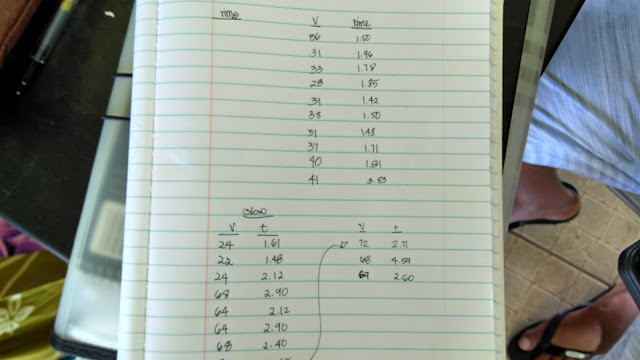 Time
V time
36 1.50
31 1.96
33 1.78
28 1.85
31 1.42
38 1.50
31 1.48
37 1.71
40
41 3.83
V t
24 1.61
22 1.48
24 2.12
68 2.90
64 2.12
64 2.90
68 2.40
V t
72 2.71
68 4.59
69 2.60